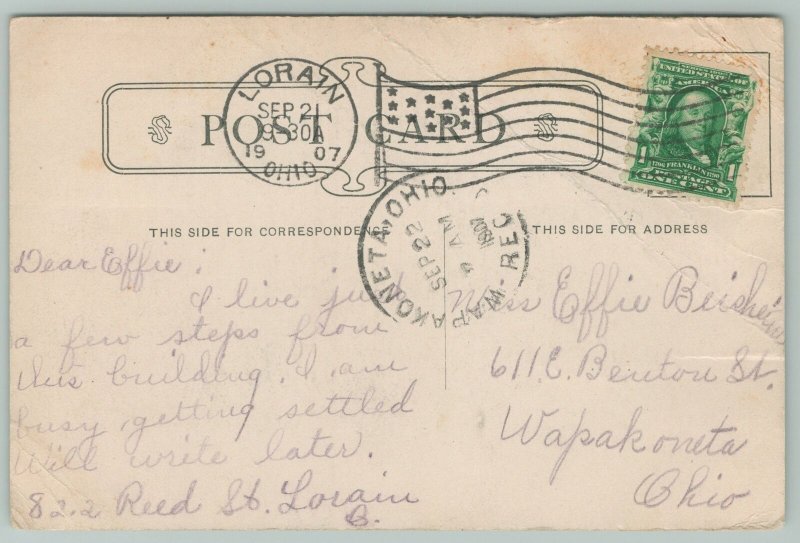 LORAIN
SEP 21
9-30A
19 07
OHIO
POST CARD
SERIES 1902
UNITED STATES OF
AMERICA
1706 FRANKLIN 1790
1 1
POSTAGE
ONE CENT
WAPAKONETA, OHIO
SEP 22
AM
1907
REC'D
THIS SIDE FOR CORRESPONDENCE
THIS SIDE FOR ADDRESS
Dear Effie:
I live just
a few steps from
this building. I am
busy getting settled
Will write later.
822 Reed St. Lorain
O.
Miss Effie
611 E. Benton St.
Wapakoneta
Ohio